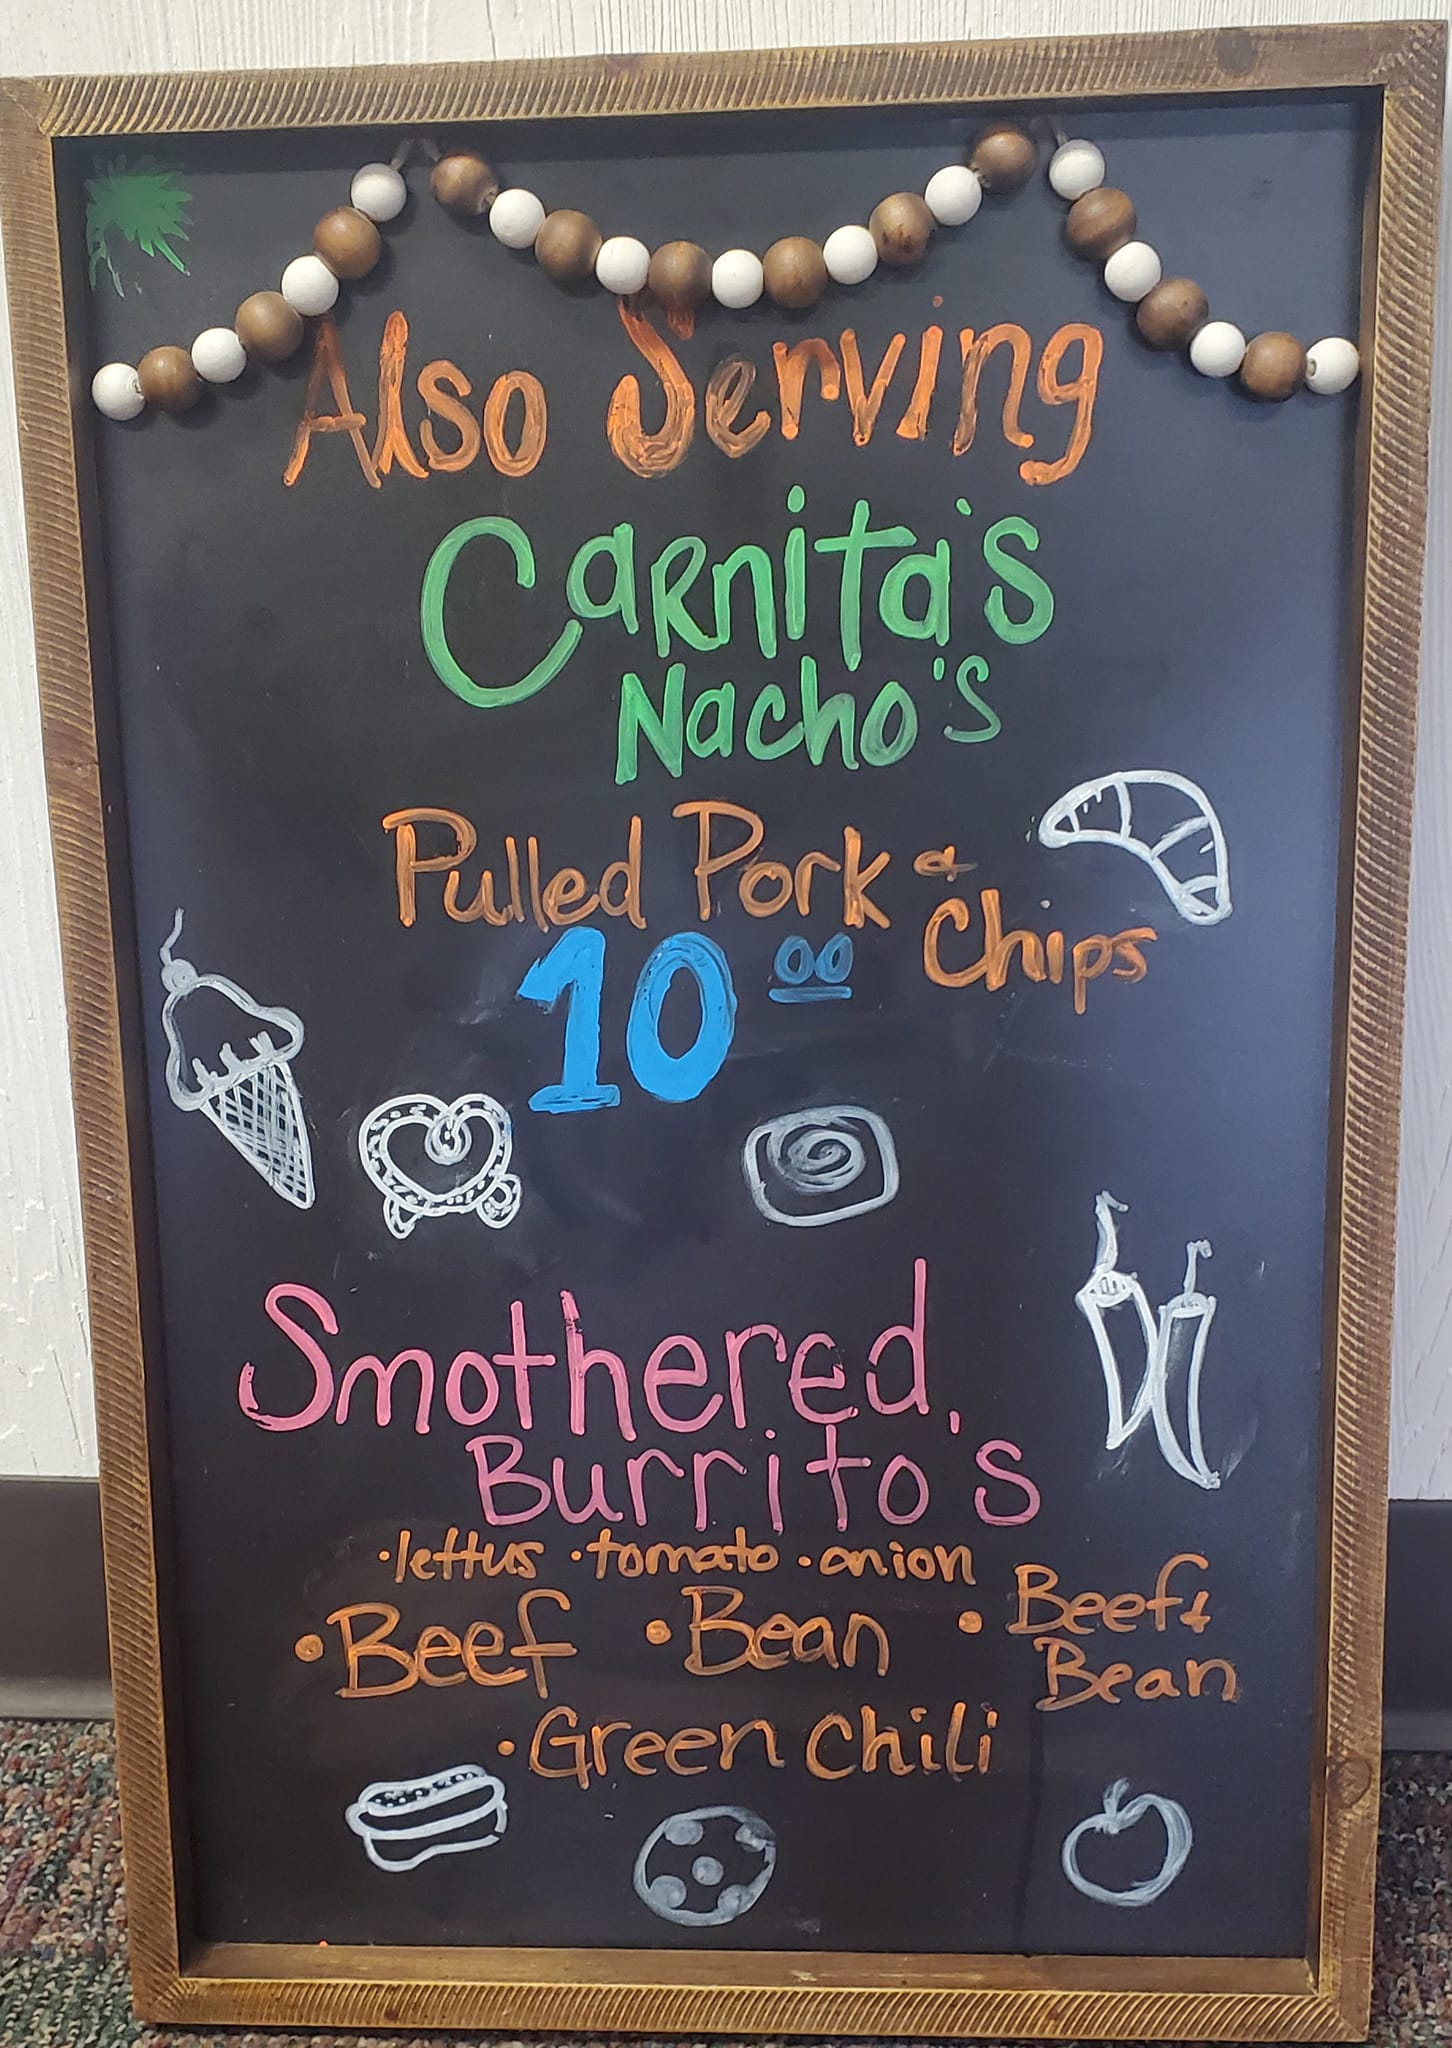 Also Serving
Carnita's
Nacho's
Pulled Pork &
Chips
10 00
Smothered
Burrito's
·lettus ·tomato ·onion
•Beef •Bean •Beef &
Bean
•Green Chili